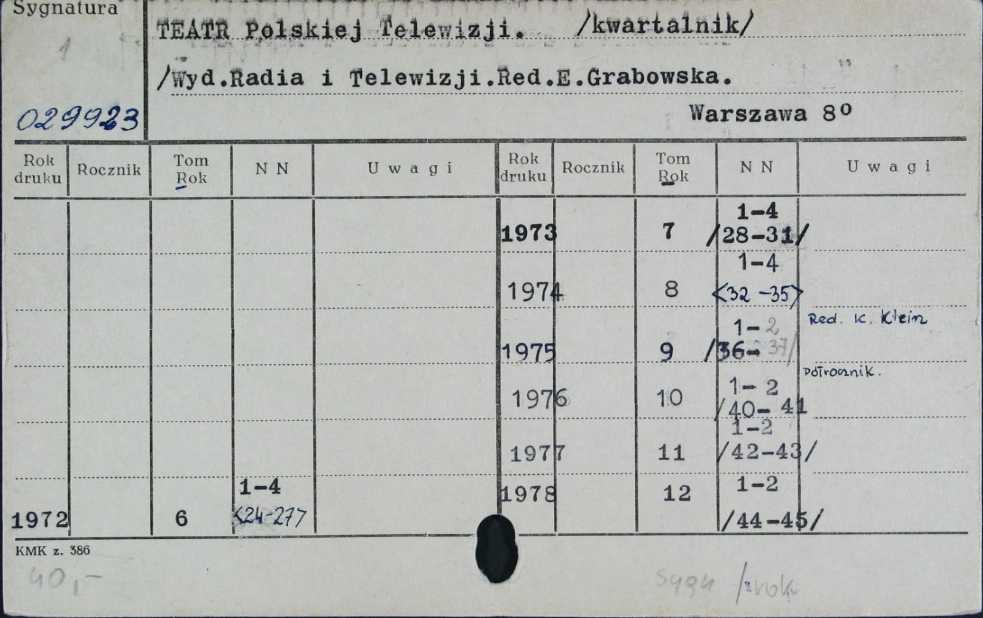 Sygnatura
1
029923
TEATR Polskiej Telewizji. /kwartalnik/
/Wyd.Radia i Telewizji.Red.E.Grabowska.
Warszawa 8º
Rok druku Rocznik Tom Rok N N Uwagi Rok druku Rocznik Tom Rok N N Uwagi
1-4
1973 7 /28-31/
1-4
1974 8 <32-35>
Red. K. Klein
1-2
1975 9 /36-37/
Półrocznik.
1-2
1976 10 /40-41
1-2
1977 11 /42-43/
1-4 1978 12 1-2
1972 6 <24-27> /44-45/
KMK z. 386
40,-
sygn /z rok